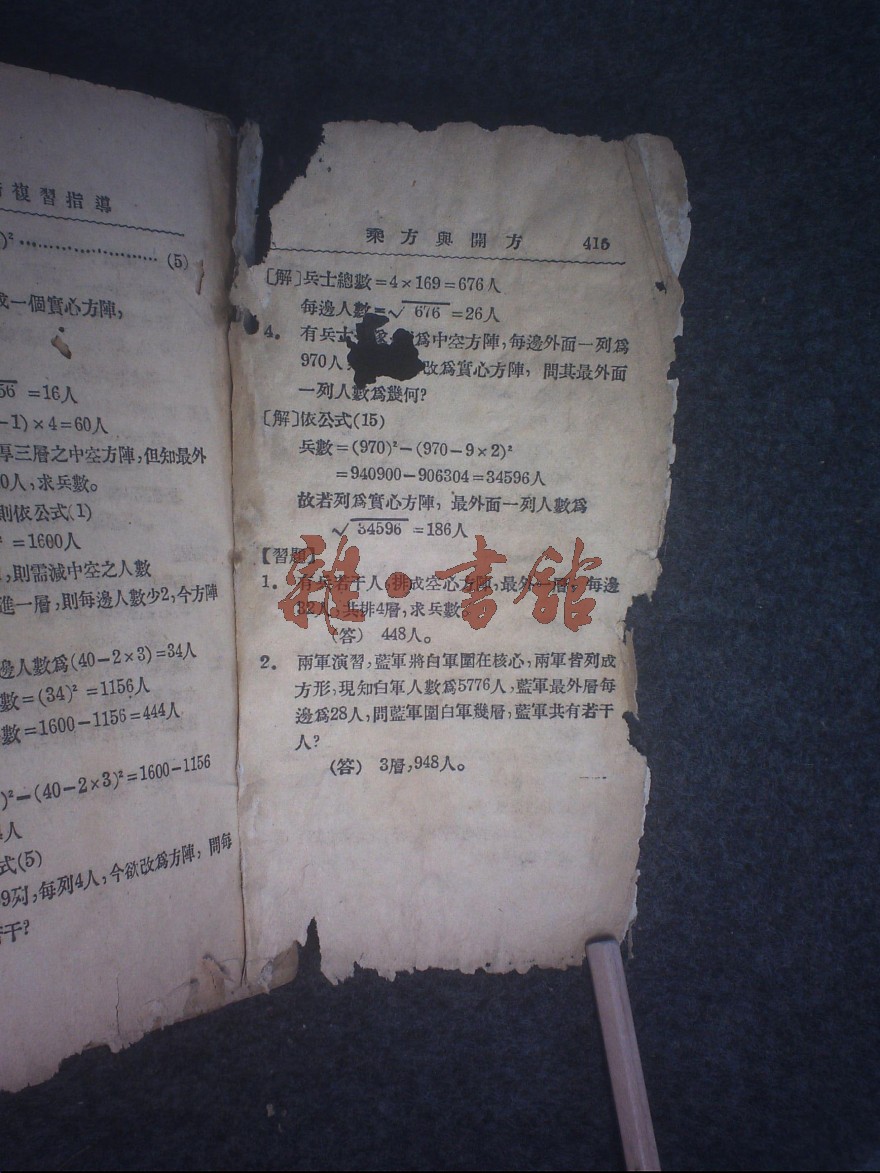 複習指導
)²⋯⋯⋯⋯⋯⋯ (5)
一個實心方陣,
=16人
-1)×4=60人
厚三層之中空方陣,但知最外
0人,求兵數。
則依公式(1)
² =1600人
,則需減中空之人數
進一層,則每邊人數少2,今方陣
邊人數爲(40-2×3)=34人
數=(34)²=1156人
數=1600-1156=444人
)²-(40-2×3)²=1600-1156
人
式(5)
9列,每列4人,今欲改爲方陣, 問每
干?
乘方與開方 415
[解]兵士總數=4×169=676人
每邊人數=√676=26人
4. 有兵士 爲中空方陣,每邊外面一列爲
970人 改爲實心方陣, 問其最外面
一列人數爲幾何?
[解]依公式(15)
兵數=(970)²-(970-9×2)²
=940900-906304=34596人
故若列爲實心方陣, 最外面一列人數爲
√34596=186人
【習題】
1. 有兵若干人,排成空心方陣,最外一層, 每邊
32人,共排4層,求兵數。
(答) 448人。
2. 兩軍演習,藍軍將白軍圍在核心,兩軍皆列成
方形,現知白軍人數爲5776人,藍軍最外層每
邊爲28人,問藍軍圍白軍幾層,藍軍共有若干
人?
(答) 3層,948人。
雜·書館